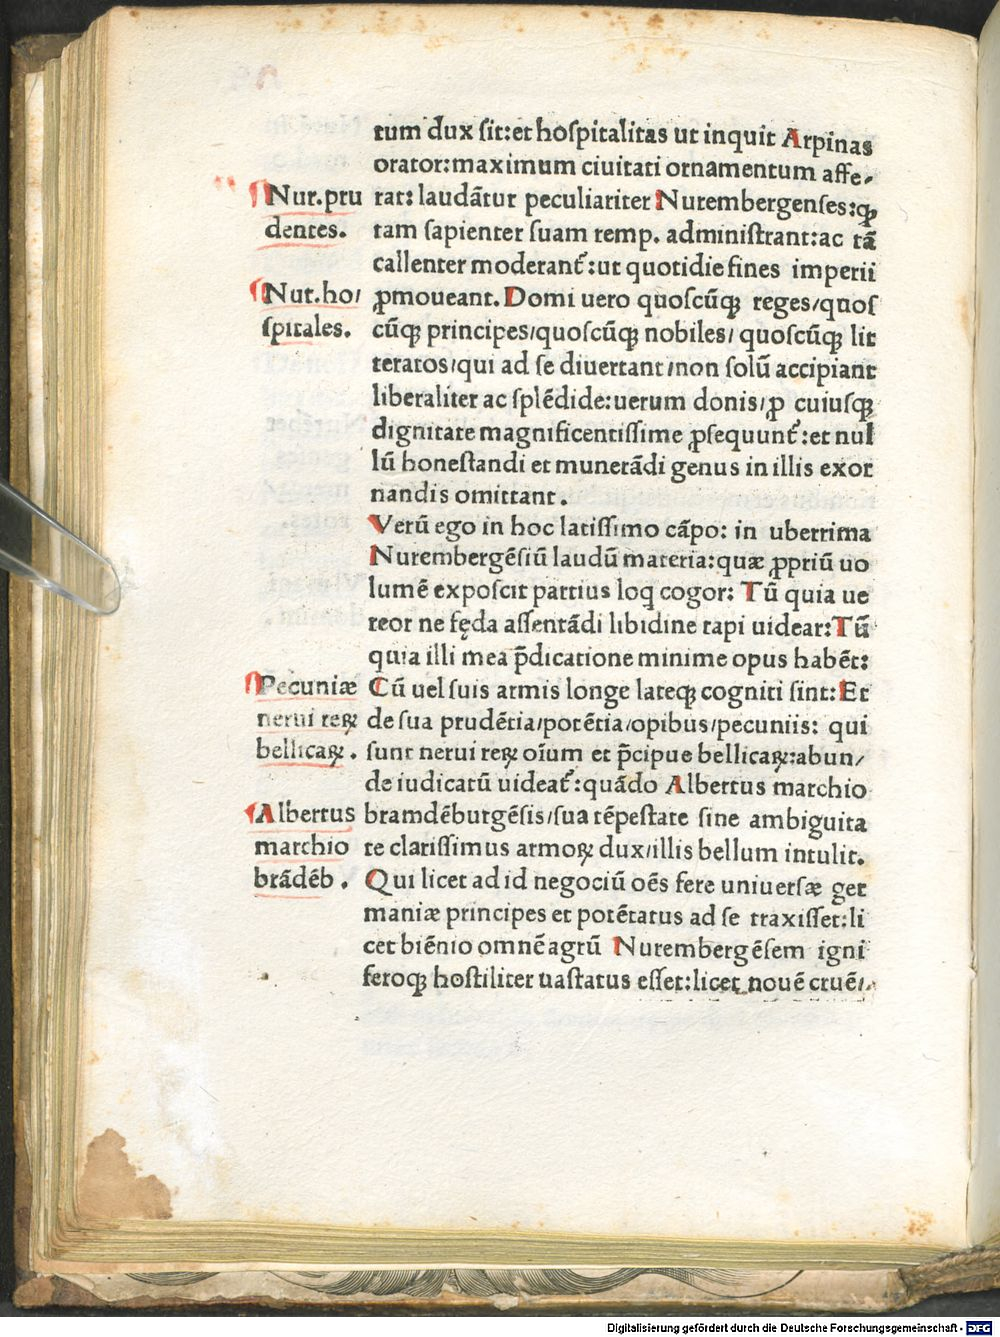 tum dux sit:et hospitalitas ut inquit Arpinas
orator:maximum ciuitati ornamentum affe⸗
rat: laudãtur peculiariter Nurembergenses:ꝙ
tam sapienter suam remp. administrant:ac tã
callenter moderant᷑:ut quotidie fines imperii
ꝓmoueant. Domi uero quoscũꝙ reges/quos
cũꝙ principes/quoscũꝙ nobiles/ quoscũꝙ lit
teratos/qui ad se diuertant/non solũ accipiant
liberaliter ac splẽdide:uerum donis/ꝓ cuiusꝙ
dignitate magnificentissime ꝓsequunt᷑:et nul
lũ honestandi et munerãdi genus in illis exor
nandis omittant.
Verũ ego in hoc latissimo cãpo: in uberrima
Nurembergẽsiũ laudũ materia:quæ ꝓpriũ uo
lumẽ exposcit partius loꝗ cogor: Tũ quia ue
reor ne fęda assentãdi libidine rapi uidear:Tũ
quia illi mea p̃dicatione minime opus habẽt:
Cũ uel suis armis longe lateꝙ cogniti sint: Et
de sua prudẽtia/potẽtia/opibus/pecuniis: qui
sunt nerui reꝝ oĩum et p̃cipue bellicaꝝ:abun/
de iudicatũ uideat᷑:quãdo Albertus marchio
bramdẽburgẽsis/sua tẽpestate sine ambiguita
te clarissimus armoꝝ dux/illis bellum intulit.
Qui licet ad id negociũ oẽs fere uniuersæ ger
maniæ principes et potẽtatus ad se traxisset:li
cet biẽnio omnẽ agrũ Nurembergẽsem igni
feroꝙ hostiliter uastatus esset:licet nouẽ cruẽ/
Nur.pru
dentes.
Nur.ho/
spitales.
Pecuniæ
nerui reꝝ
bellicaꝝ.
Albertus
marchio
brãdẽb.
Digitalisierung gefördert durch die Deutsche Forschungsgemeinschaft - DFG